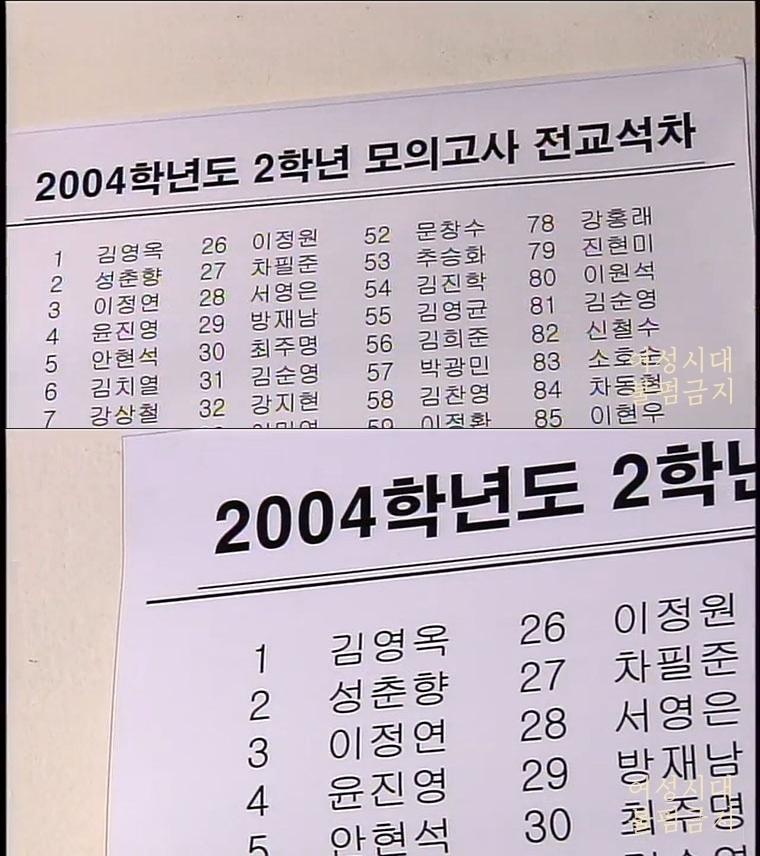 2004학년도 2학년 모의고사 전교석차
1 김영옥 26 이정원 52 문창수 78 강홍래
2 성춘향 27 차필준 53 추승화 79 진현미
3 이정연 28 서영은 54 김진학 80 이원석
4 윤진영 29 방재남 55 김영균 81 김순영
5 안현석 30 최주명 56 김희준 82 신철수
6 김치열 31 김순영 57 박광민 83
7 강상철 32 강지현 58 김찬영 84
59 이정환 85 이현우
여성시대
불펌금지
2004학년도 2학년
1 김영옥 26 이정원
2 성춘향 27 차필준
3 이정연 28 서영은
4 윤진영 29 방재남
5 안현석 30 최주명
여성시대
불펌금지